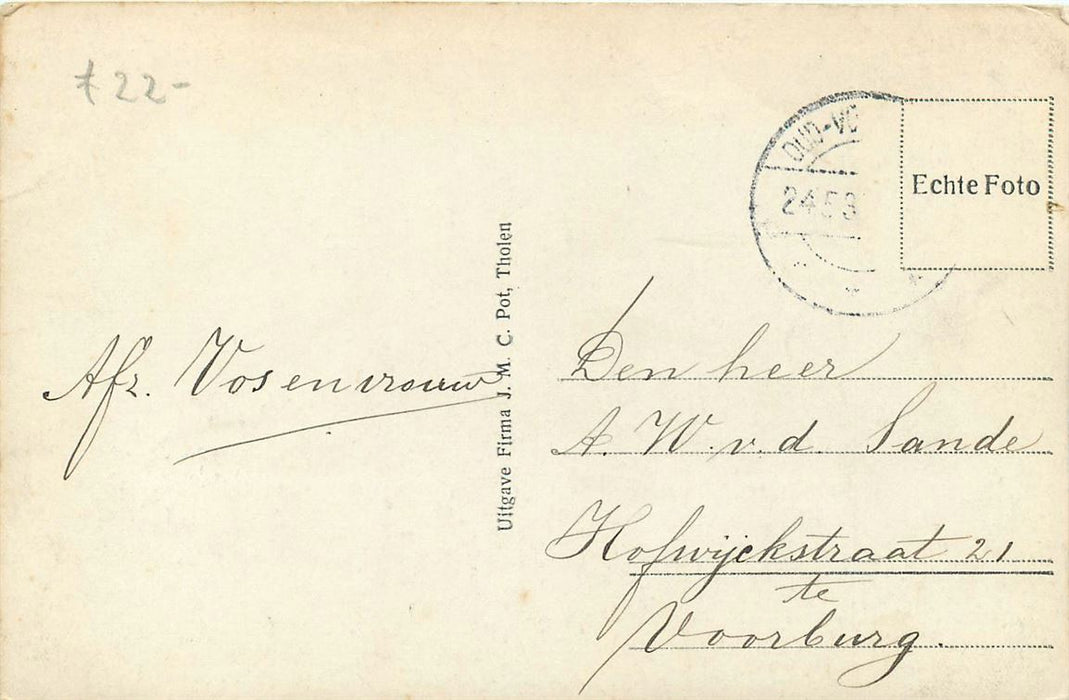 £22-
OUD-VO
24.5.3
Echte Foto
Uitgave Firma J. M. C. Pot, Tholen
Afz. Vos en vrouw
Den heer
A. W. v. d. Sande
Hofwijckstraat 21
te
Voorburg.